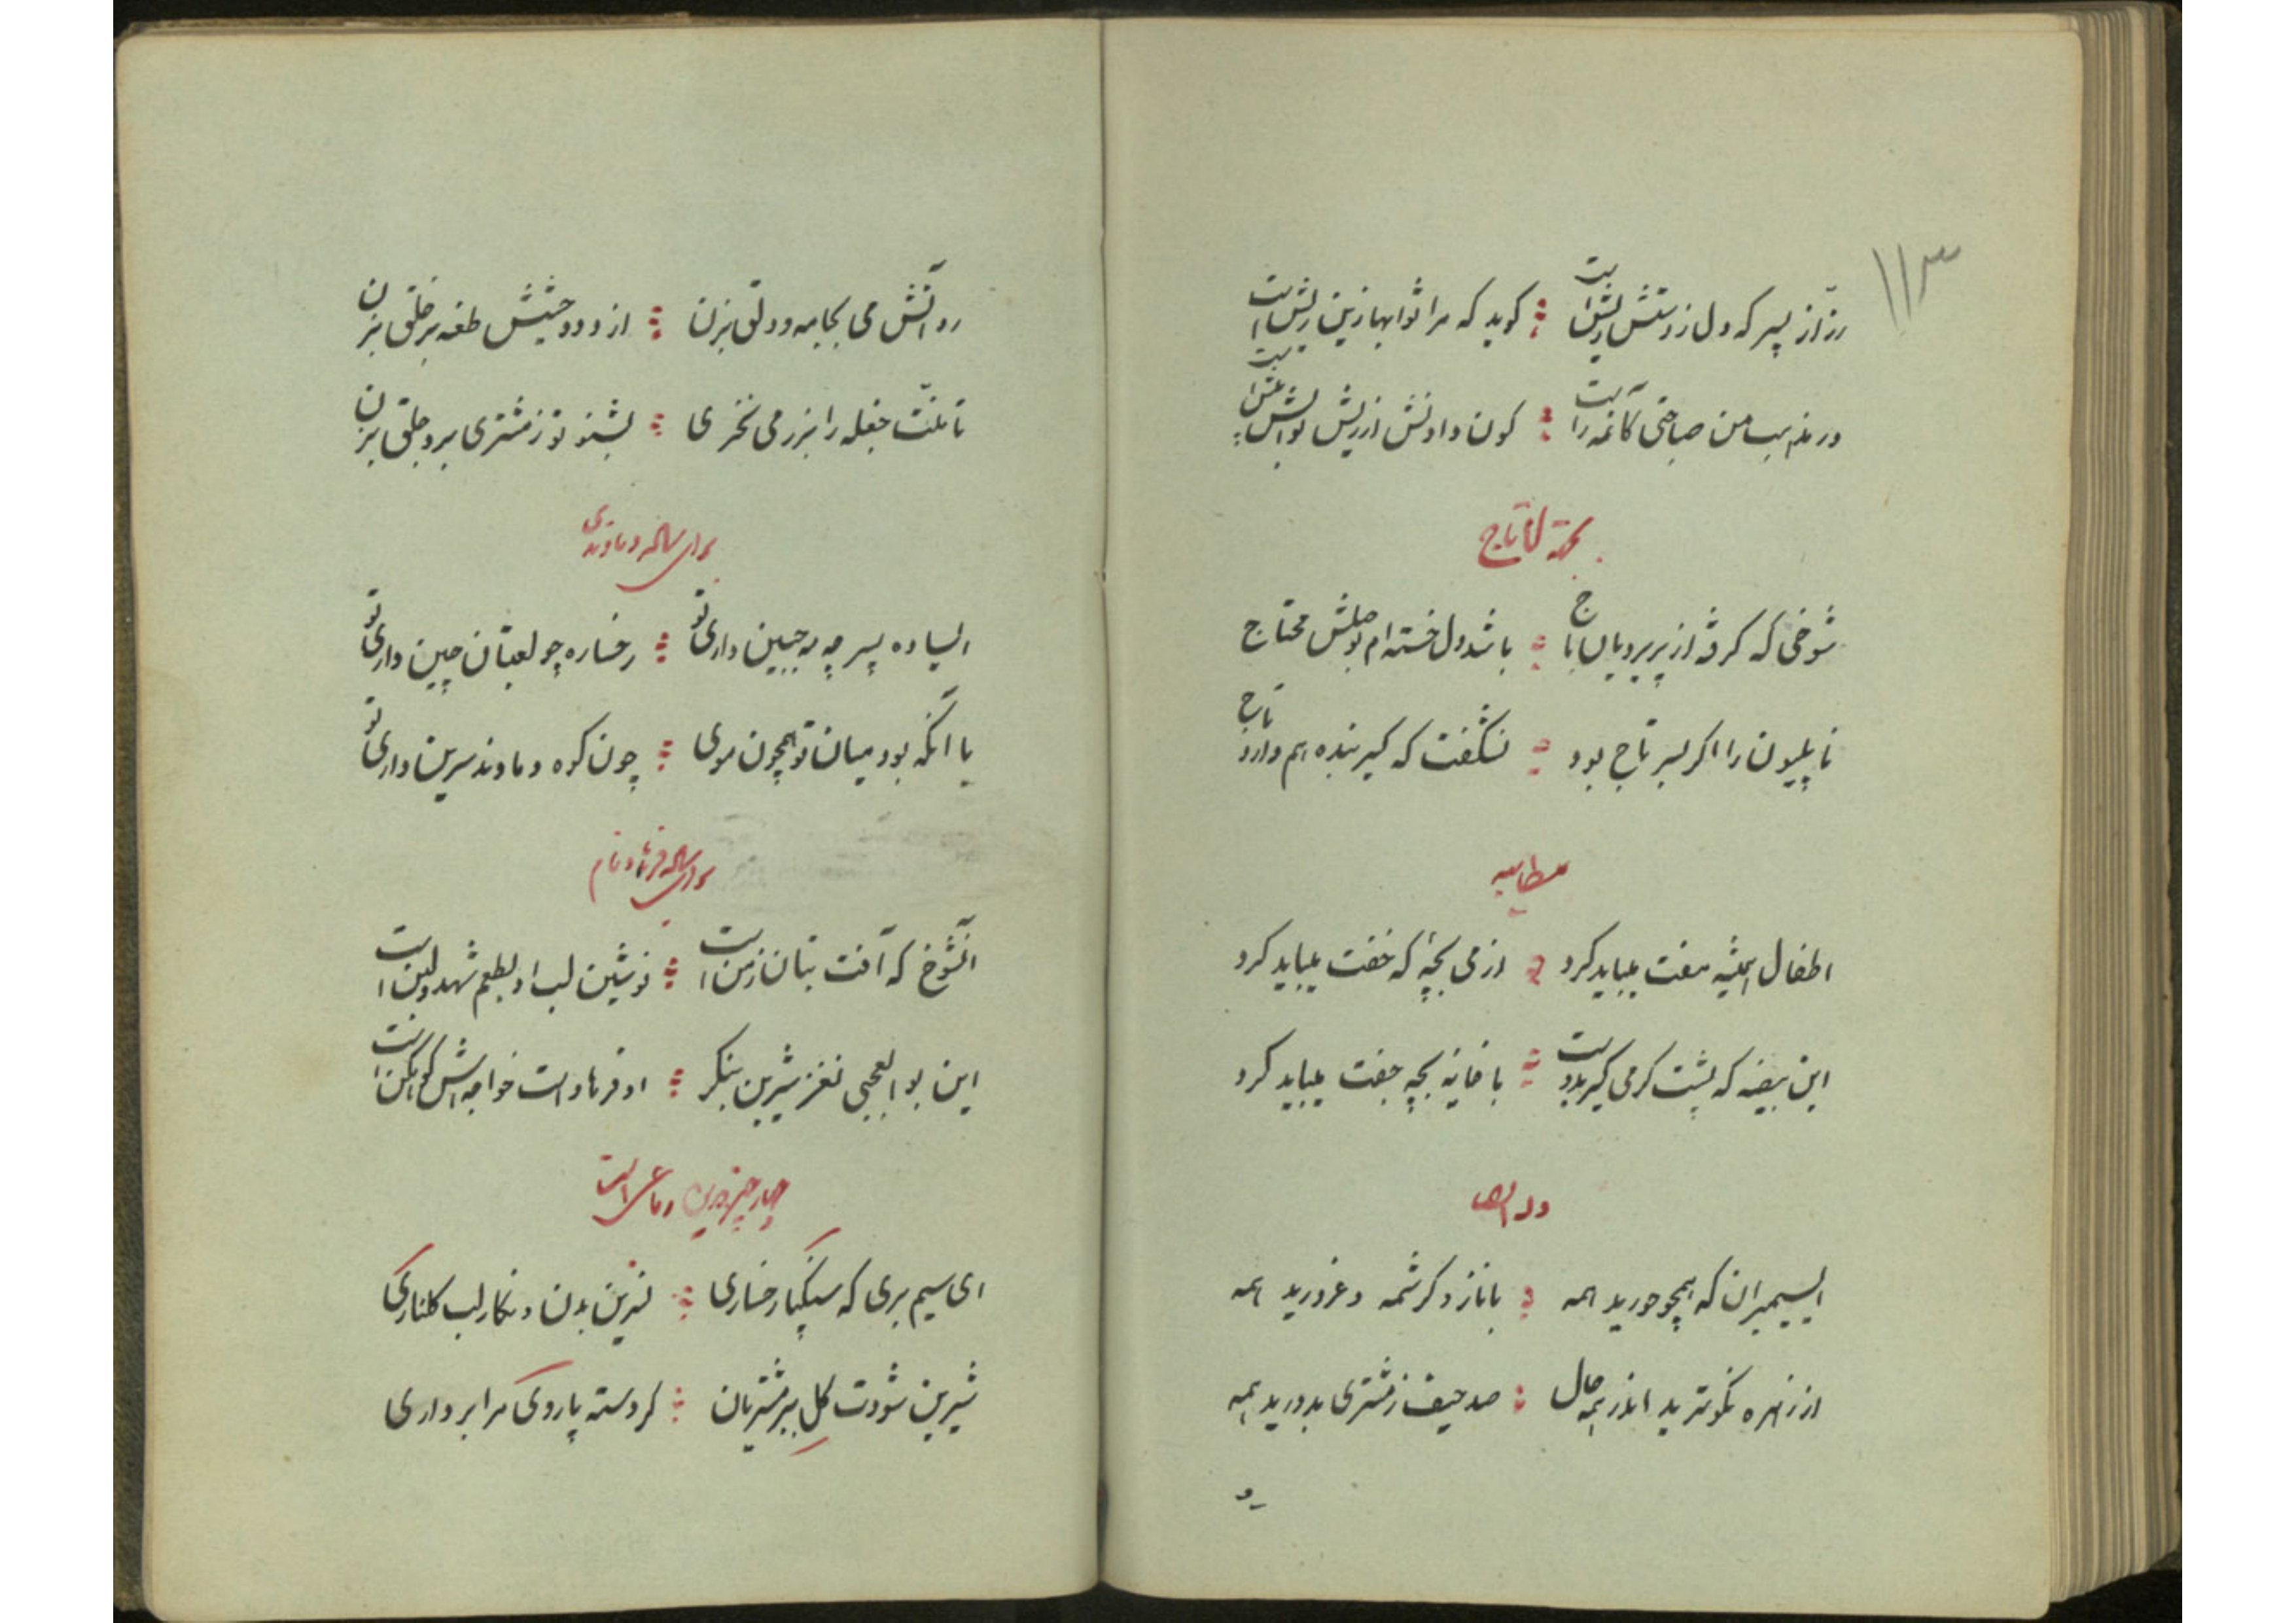 ۱۱۳
رزّاز پسر که دل ز دستش ریش است گوید که مرا ثوابها زین ریش است
شوخی که گرفته از پریرویان باج باشد دل خسته‌ام بوصلش محتاج
ناپلیون را اگر بسر تاج بود نشگفت که کیر بنده هم دارد تاج
مطایبه
اطفال همیشه مفت میباید کرد ازمی بچهٔ که خفت میباید کرد
این بیضه که پشت کرمی کیر بدست با خایه بچه جفت میباید کرد
وله ایضا
ای سیمبران که همچو حورید همه با ناز و کرشمه و غرورید همه
از زهره نکوترید اندر همه حال صد حیف ز مشتری بدورید همه
رو آتش می بجامه و دلق بزن از دود حشیش طعنه بر خلق بزن
بشنو تو ز مشتری برو جلق بزن
برای ساده دماوندی
ای ساده پسر چه مه جبین داری تو رخساره چو لعبتان چین داری تو
با آنکه بود میان تو همچون موی چون کوه دماوند سرین داری تو
برای ساده فرهاد نام
آنشوخ که آفت بتان زمن است نوشین لب او بطعم شهد و لبن است
این بوالعجبی نغز شیرین بنگر او فرهاد است خواجه‌اش کوهکن است
چهار چیز درین رباعی است
ای سیم بری که سیکپار خساری نسرین بدن و نگار لب گلناری
شیرین شودت کل ببر مشتریان گر دسته پاروی مرا برداری